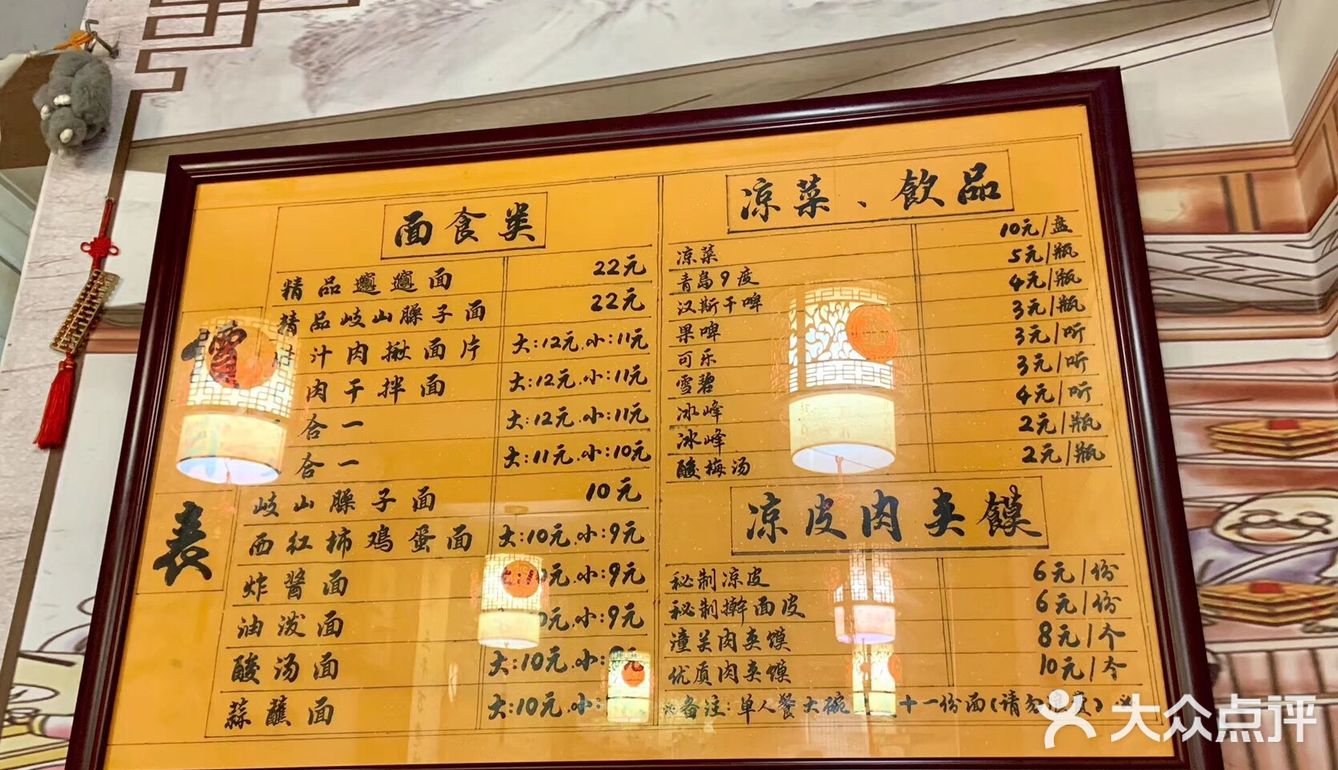 價
表
面食类
精品𰻝𰻝面 22元
精品岐山臊子面 22元
汁肉揪面片 大:12元.小:11元
肉干拌面 大:12元.小:11元
合一 大:12元.小:11元
合一 大:11元.小:10元
岐山臊子面 10元
西红柿鸡蛋面 大:10元.小:9元
炸酱面 大:10元.小:9元
油泼面 0元.小:9元
酸汤面 大:10元.小:9元
蒜蘸面 大:10元.小:
凉菜、飲品
凉菜 10元/盘
青島9度 5元/瓶
汉斯干啤 4元/瓶
果啤 3元/瓶
可乐 3元/听
雪碧 3元/听
冰峰 4元/听
冰峰 2元/瓶
酸梅汤 2元/瓶
凉皮肉夹馍
秘制凉皮 6元/份
秘制擀面皮 6元/份
潼关肉夹馍 8元/个
优质肉夹馍 10元/个
※备注:单人餐大碗 十一份面(请勿
大众点评